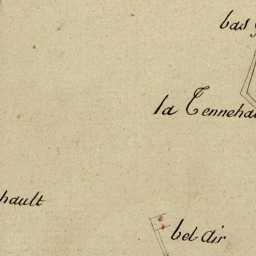 bas
la Tenneha
hault
bel air